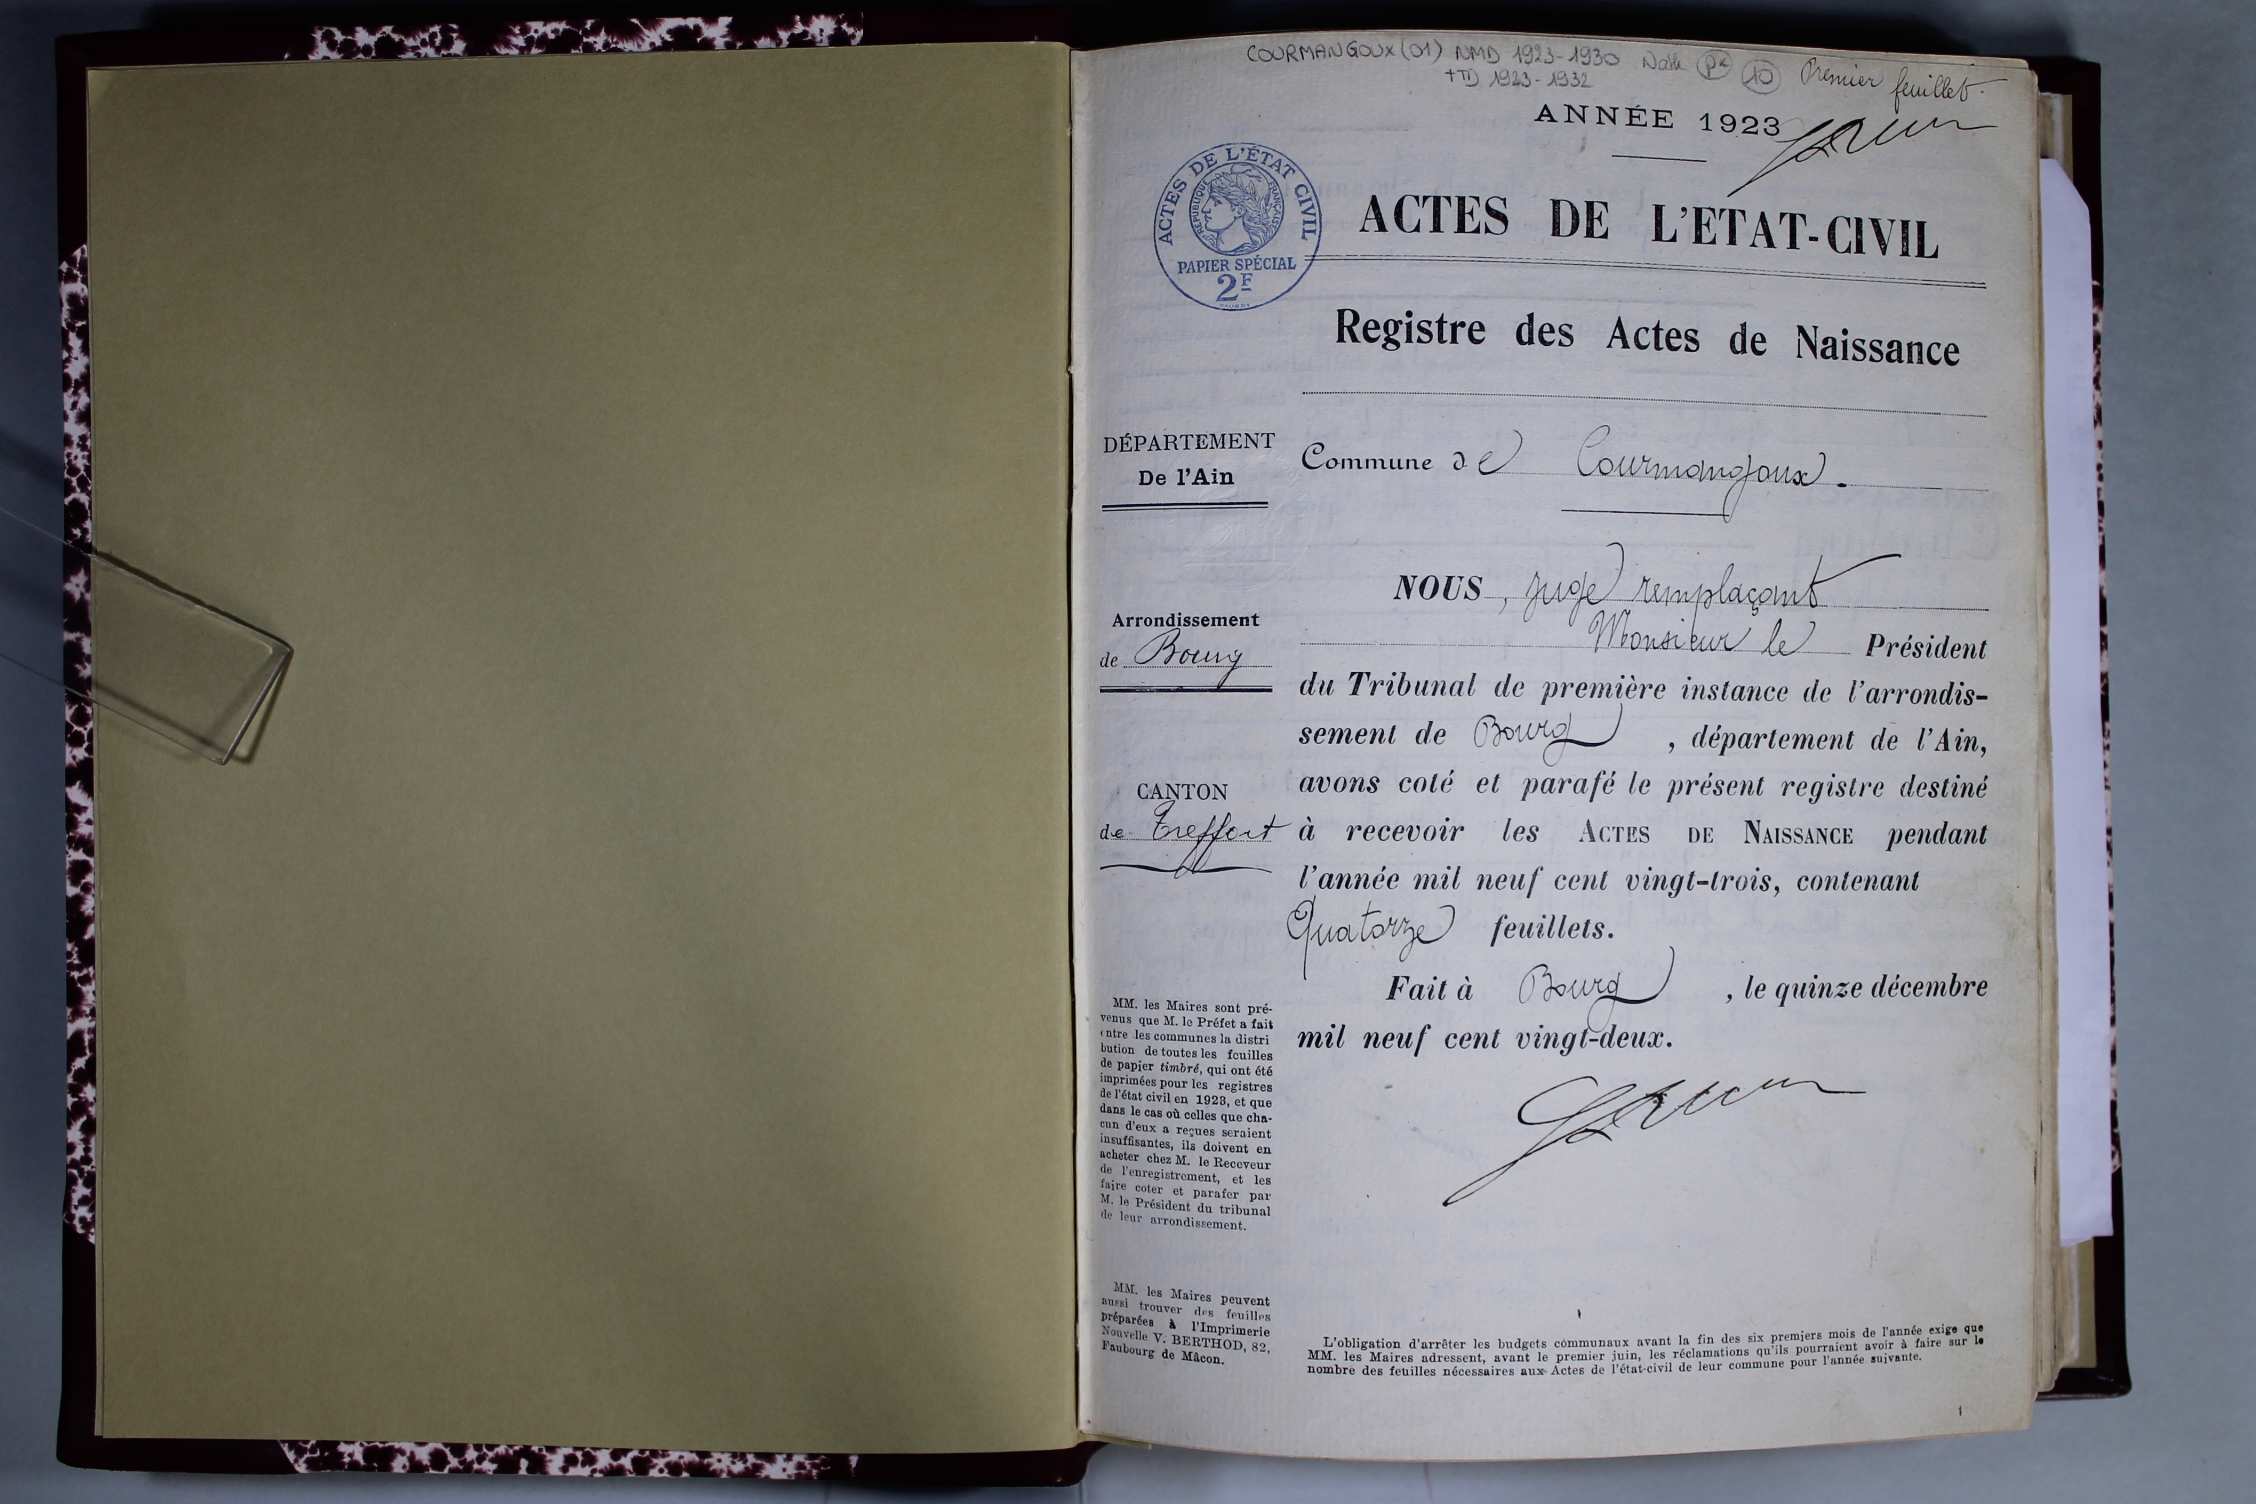 COURMANGOUX (01) NMD 1923-1930
+TD 1923-1932
10
Premier feuillet.
ANNÉE 1923
ACTES DE L'ÉTAT CIVIL
RÉPUBLIQUE FRANÇAISE
PAPIER SPÉCIAL
2F
ACTES DE L'ETAT-CIVIL
Registre des Actes de Naissance
DÉPARTEMENT
De l'Ain
Commune de Courmangoux.
Arrondissement
de Bourg
CANTON
de Treffort
NOUS, juge remplaçant
Monsieur le Président
du Tribunal de première instance de l'arrondis-
sement de Bourg, département de l'Ain,
avons coté et parafé le présent registre destiné
à recevoir les ACTES DE NAISSANCE pendant
l'année mil neuf cent vingt-trois, contenant
Quatorze feuillets.
Fait à Bourg, le quinze décembre
mil neuf cent vingt-deux.
MM. les Maires sont pré-
venus que M. le Préfet a fait
entre les communes la distri
bution de toutes les feuilles
de papier timbré, qui ont été
imprimées pour les registres
de l'état civil en 1923, et que
dans le cas où celles que cha-
cun d'eux a reçues seraient
insuffisantes, ils doivent en
acheter chez M. le Receveur
de l'enregistrement, et les
faire coter et parafer par
M. le Président du tribunal
de leur arrondissement.
MM. les Maires peuvent
aussi trouver des feuilles
préparées à l'Imprimerie
Nouvelle V. BERTHOD, 82,
Faubourg de Mâcon.
L'obligation d'arrêter les budgets communaux avant la fin des six premiers mois de l'année exige que
MM. les Maires adressent, avant le premier juin, les réclamations qu'ils pourraient avoir à faire sur le
nombre des feuilles nécessaires aux Actes de l'état-civil de leur commune pour l'année suivante.
1